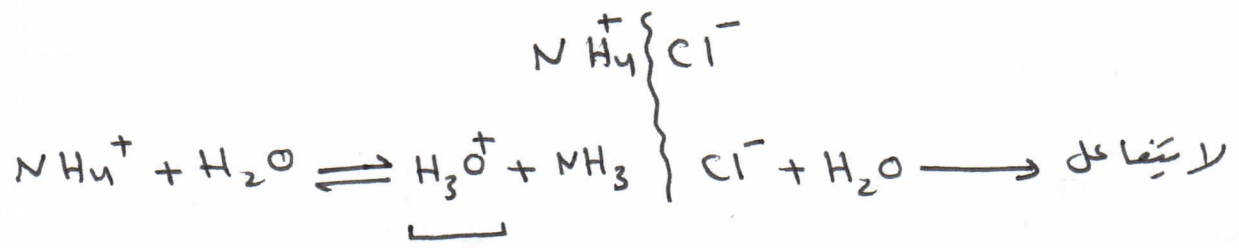 NH₄⁺ Cl⁻
NH₄⁺ + H₂O ⇌ H₃O⁺ + NH₃ Cl⁻ + H₂O ⟶ لا يتفاعل